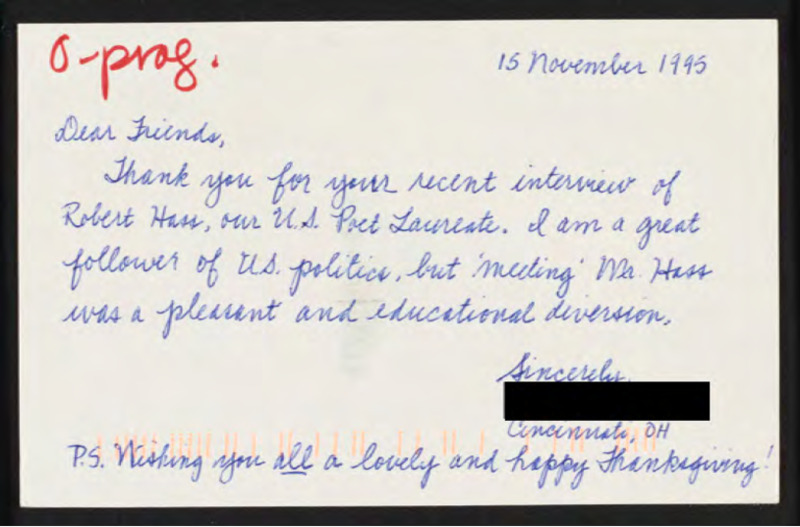 O-prog.
15 November 1995
Dear Friends,
Thank you for your recent interview of
Robert Hass, our U.S. Poet Laureate. I am a great
follower of U.S. politics, but 'meeting' Mr. Hass
was a pleasant and educational diversion.
Sincerely,
Cincinnati, OH
P.S. Wishing you all a lovely and happy Thanksgiving!